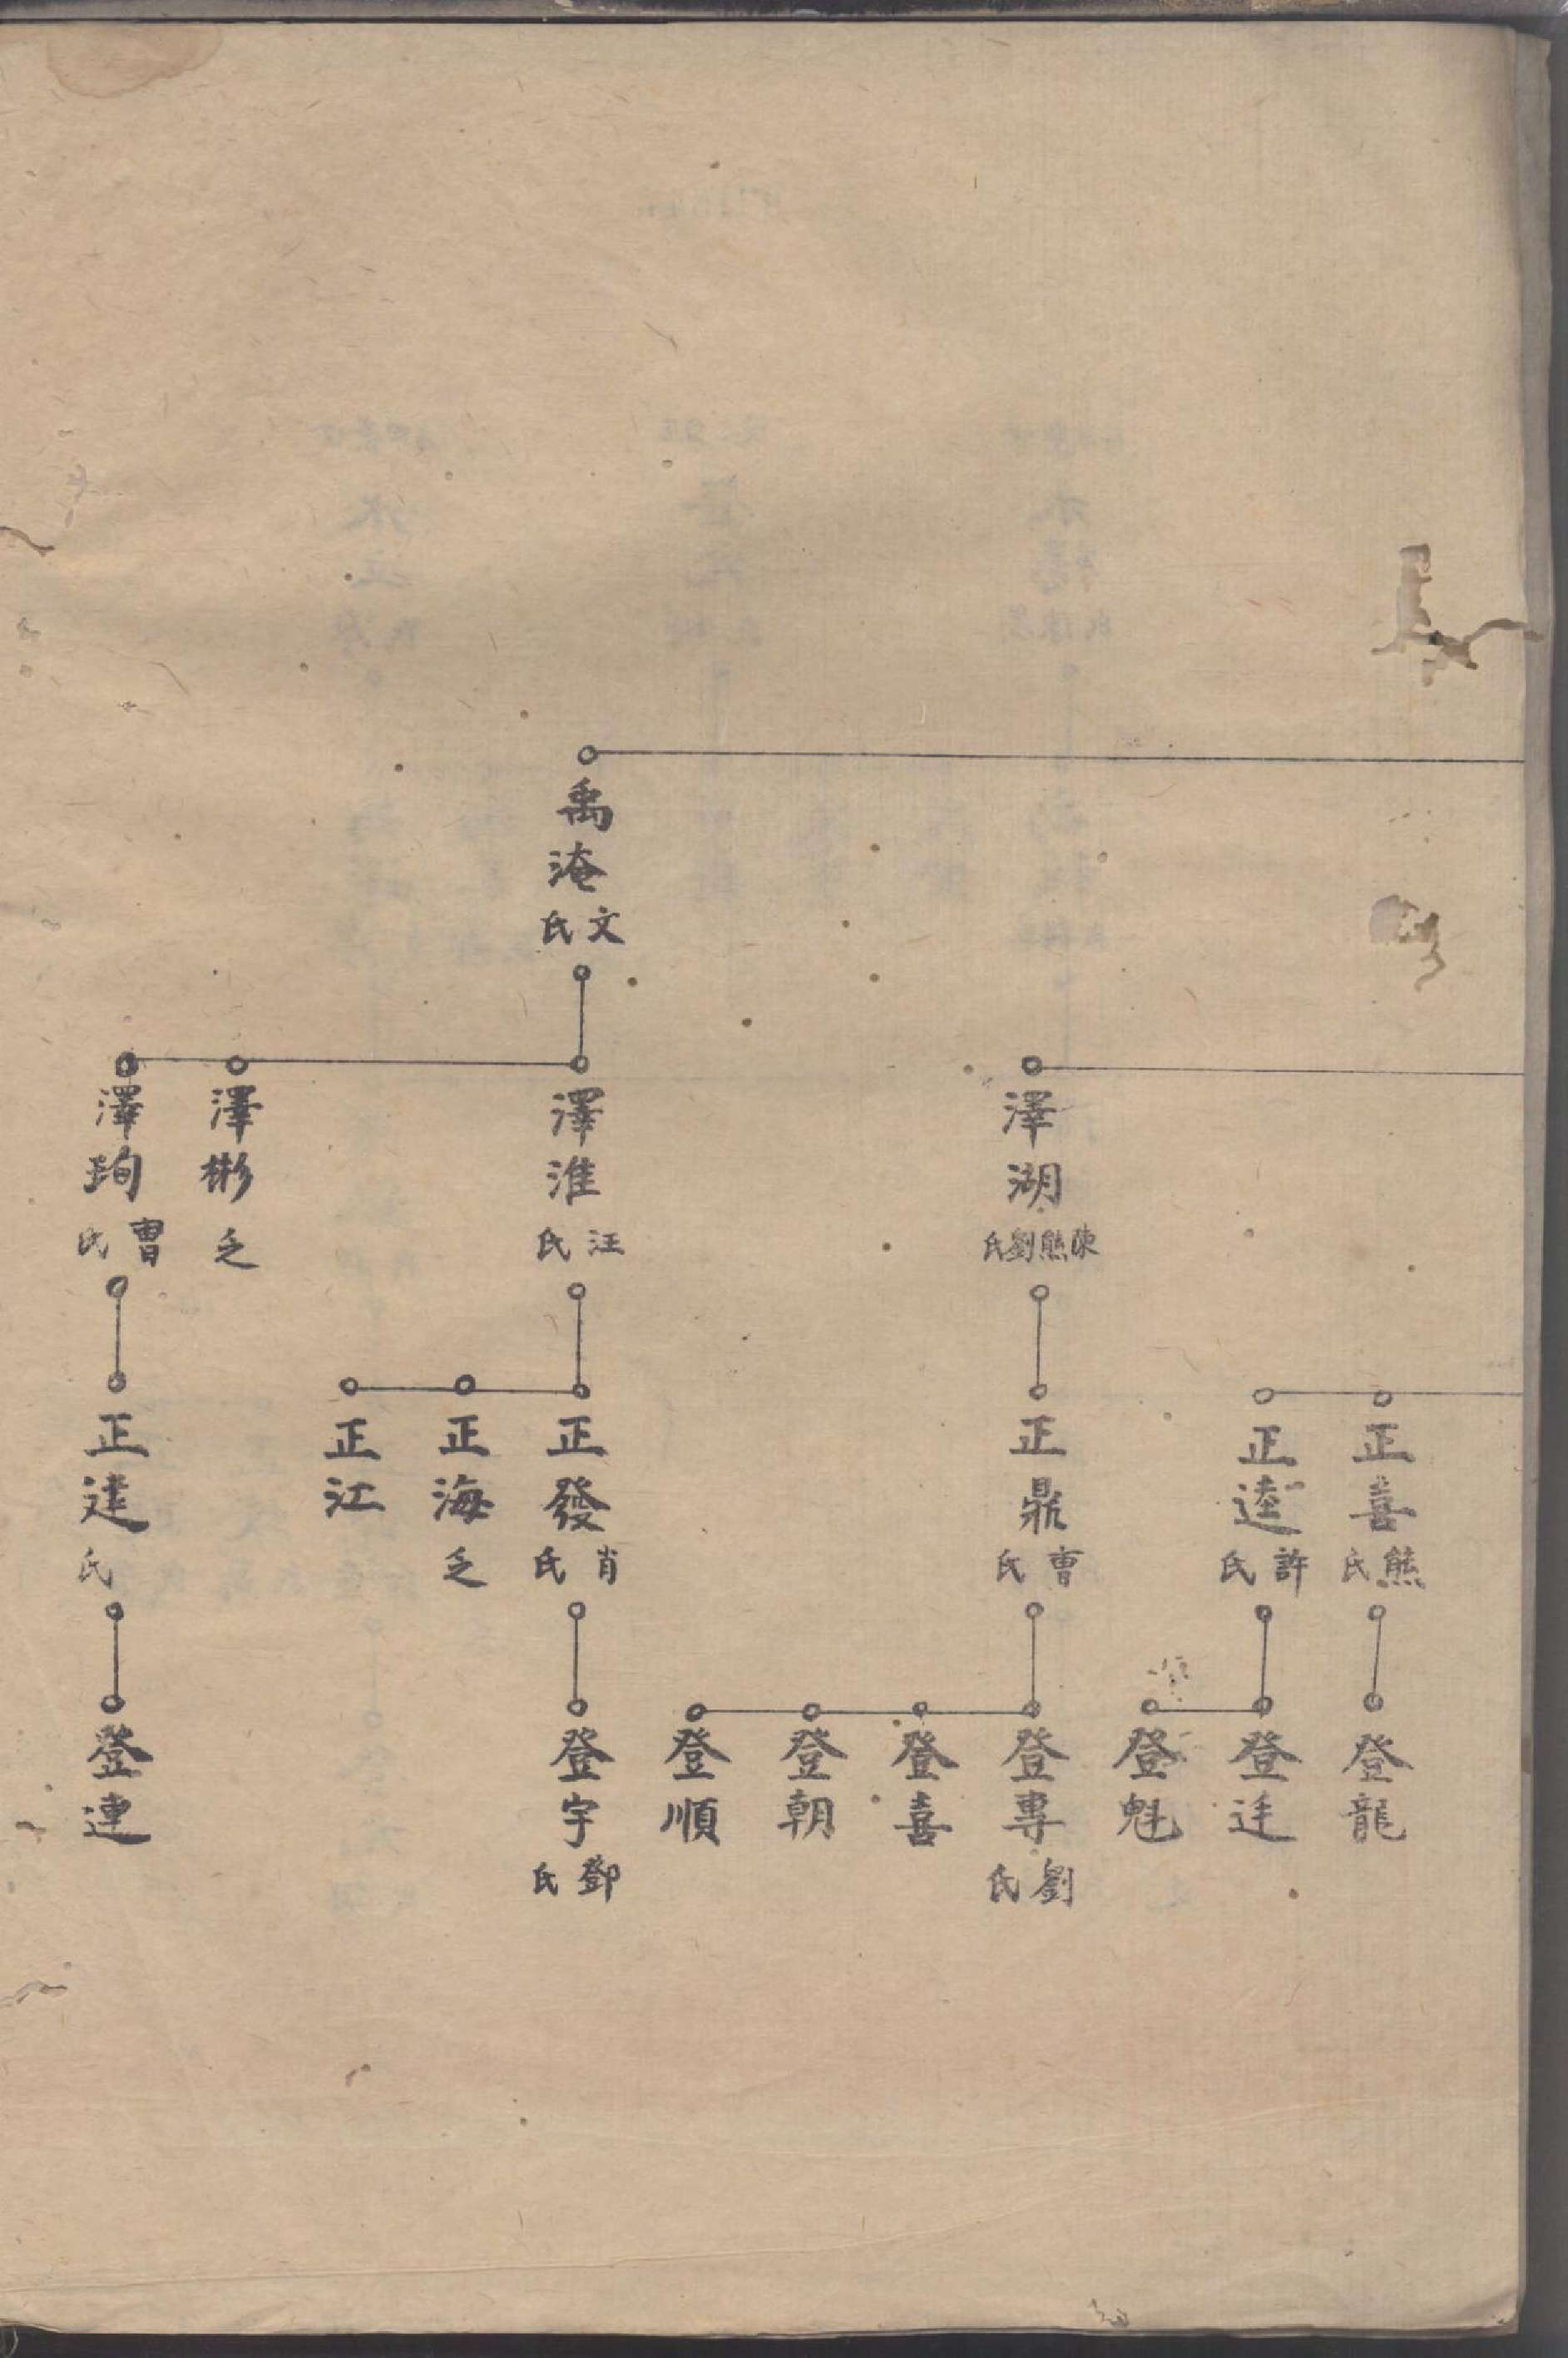 禹淹
文氏
澤湖
陳熊劉氏
澤淮
汪氏
澤彬
乏
澤珣
曹氏
正喜
熊氏
正逵
許氏
正鼎
曹氏
正發
肖氏
正海
乏
正江
正建
氏
登龍
登廷
登魁
登專
劉氏
登喜
登朝
登順
登宇
鄧氏
登連